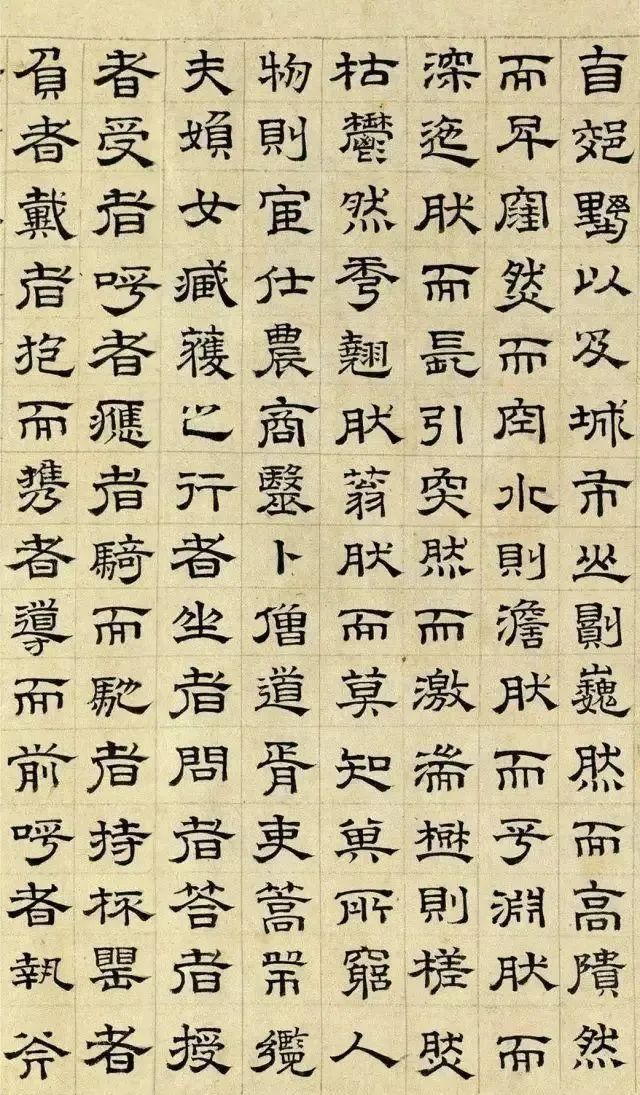 自郊墅以及城市山則巍然而高隤然
而卑窪然而空水則澹然而平淵然而
深迤然而長引突然而激湍樹則槎然
枯鬱然秀翹然蓊然而莫知其所窮人
物則宦仕農商醫卜僧道胥吏篙師纜
夫婦女臧獲之行者坐者問者答者授
者受者呼者應者騎而馳者持杯罌者
負者戴者抱而携者導而前呼者執斧